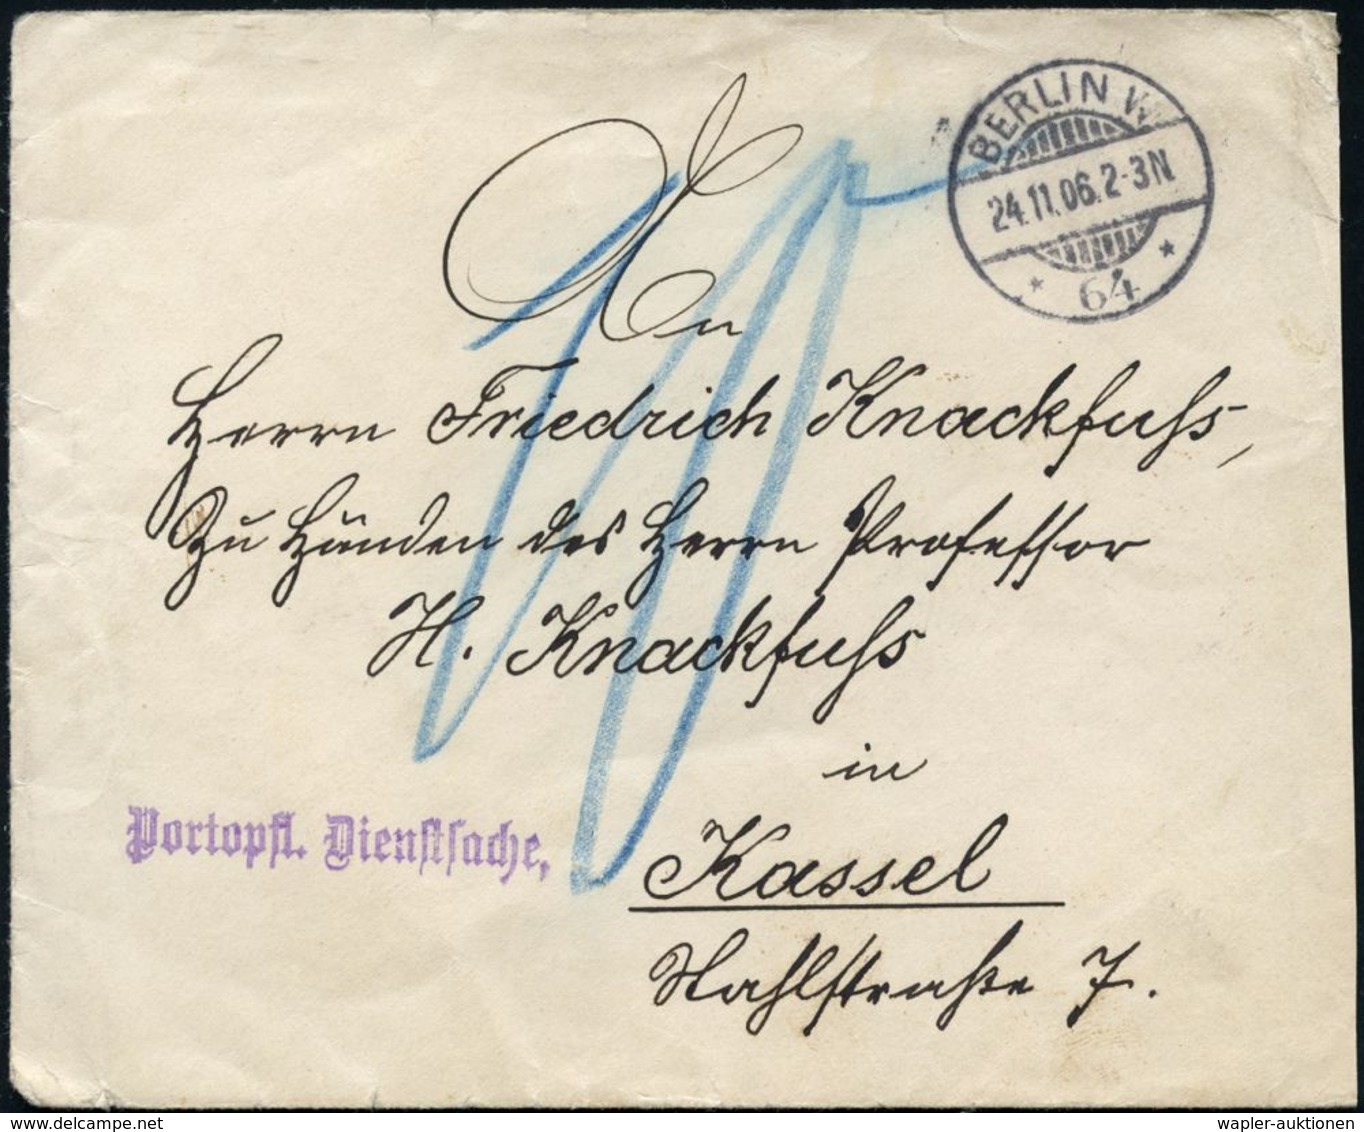 BERLIN W.
24.11.06.2-3N
* 64 *
An
Herrn Friedrich Knackfuß,
Zu Händen des Herrn Professor
H. Knackfuß
in
Portopfl. Dienstsache,
Kassel
Nahlstraße 7.
10
wapler-auktionen